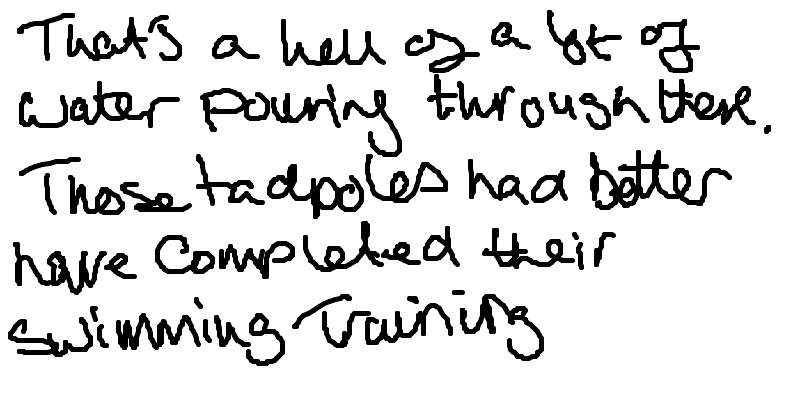 That's a hell of a lot of
water pouring through there.
Those tadpoles had better
have completed their
swimming training